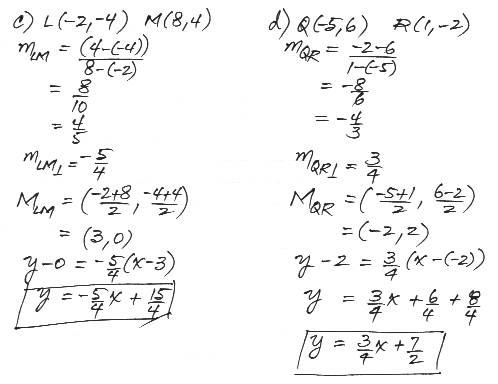 c) L(-2,-4) M(8,4)
m_LM = (4-(-4))/8-(-2)
= 8/10
= 4/5
m_LM⊥ = -5/4
M_LM = (-2+8/2, -4+4/2)
= (3,0)
y-0 = -5/4(x-3)
y = -5/4x + 15/4
d) Q(-5,6) R(1,-2)
m_QR = -2-6/1-(-5)
= -8/6
= -4/3
m_QR⊥ = 3/4
M_QR = (-5+1/2, 6-2/2)
= (-2,2)
y-2 = 3/4(x-(-2))
y = 3/4x + 6/4 + 8/4
y = 3/4x + 7/2